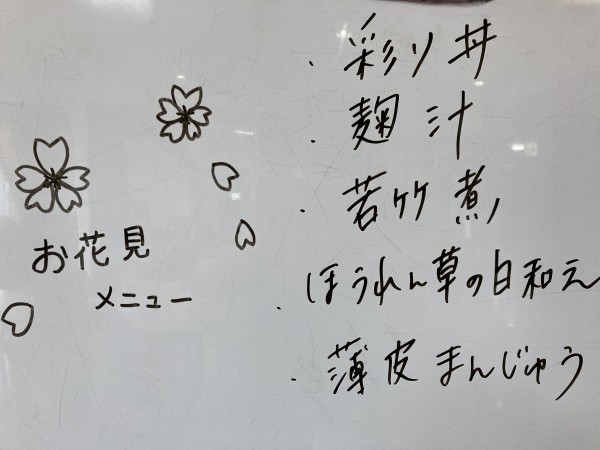 お花見
メニュー
・彩り丼
・麹汁
・若竹煮
・ほうれん草の白和え
・薄皮まんじゅう